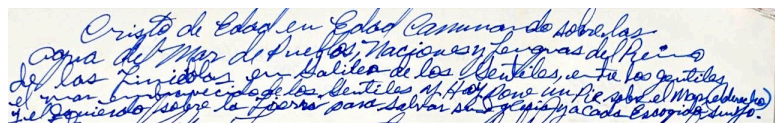 Cristo de Edad en Edad Caminando sobre las
agua del Mar de Pueblos, Naciones y Lenguas del Reino
de las Tinieblas, en Galilea de los Gentiles, entre los gentiles,
el mar embravecido de los Gentiles. Y Hoy Pone un Pie sobre el Mar (el derecho)
y el Izquierdo sobre la Tierra para salvar su Iglesia y a cada Escogido Suyo.